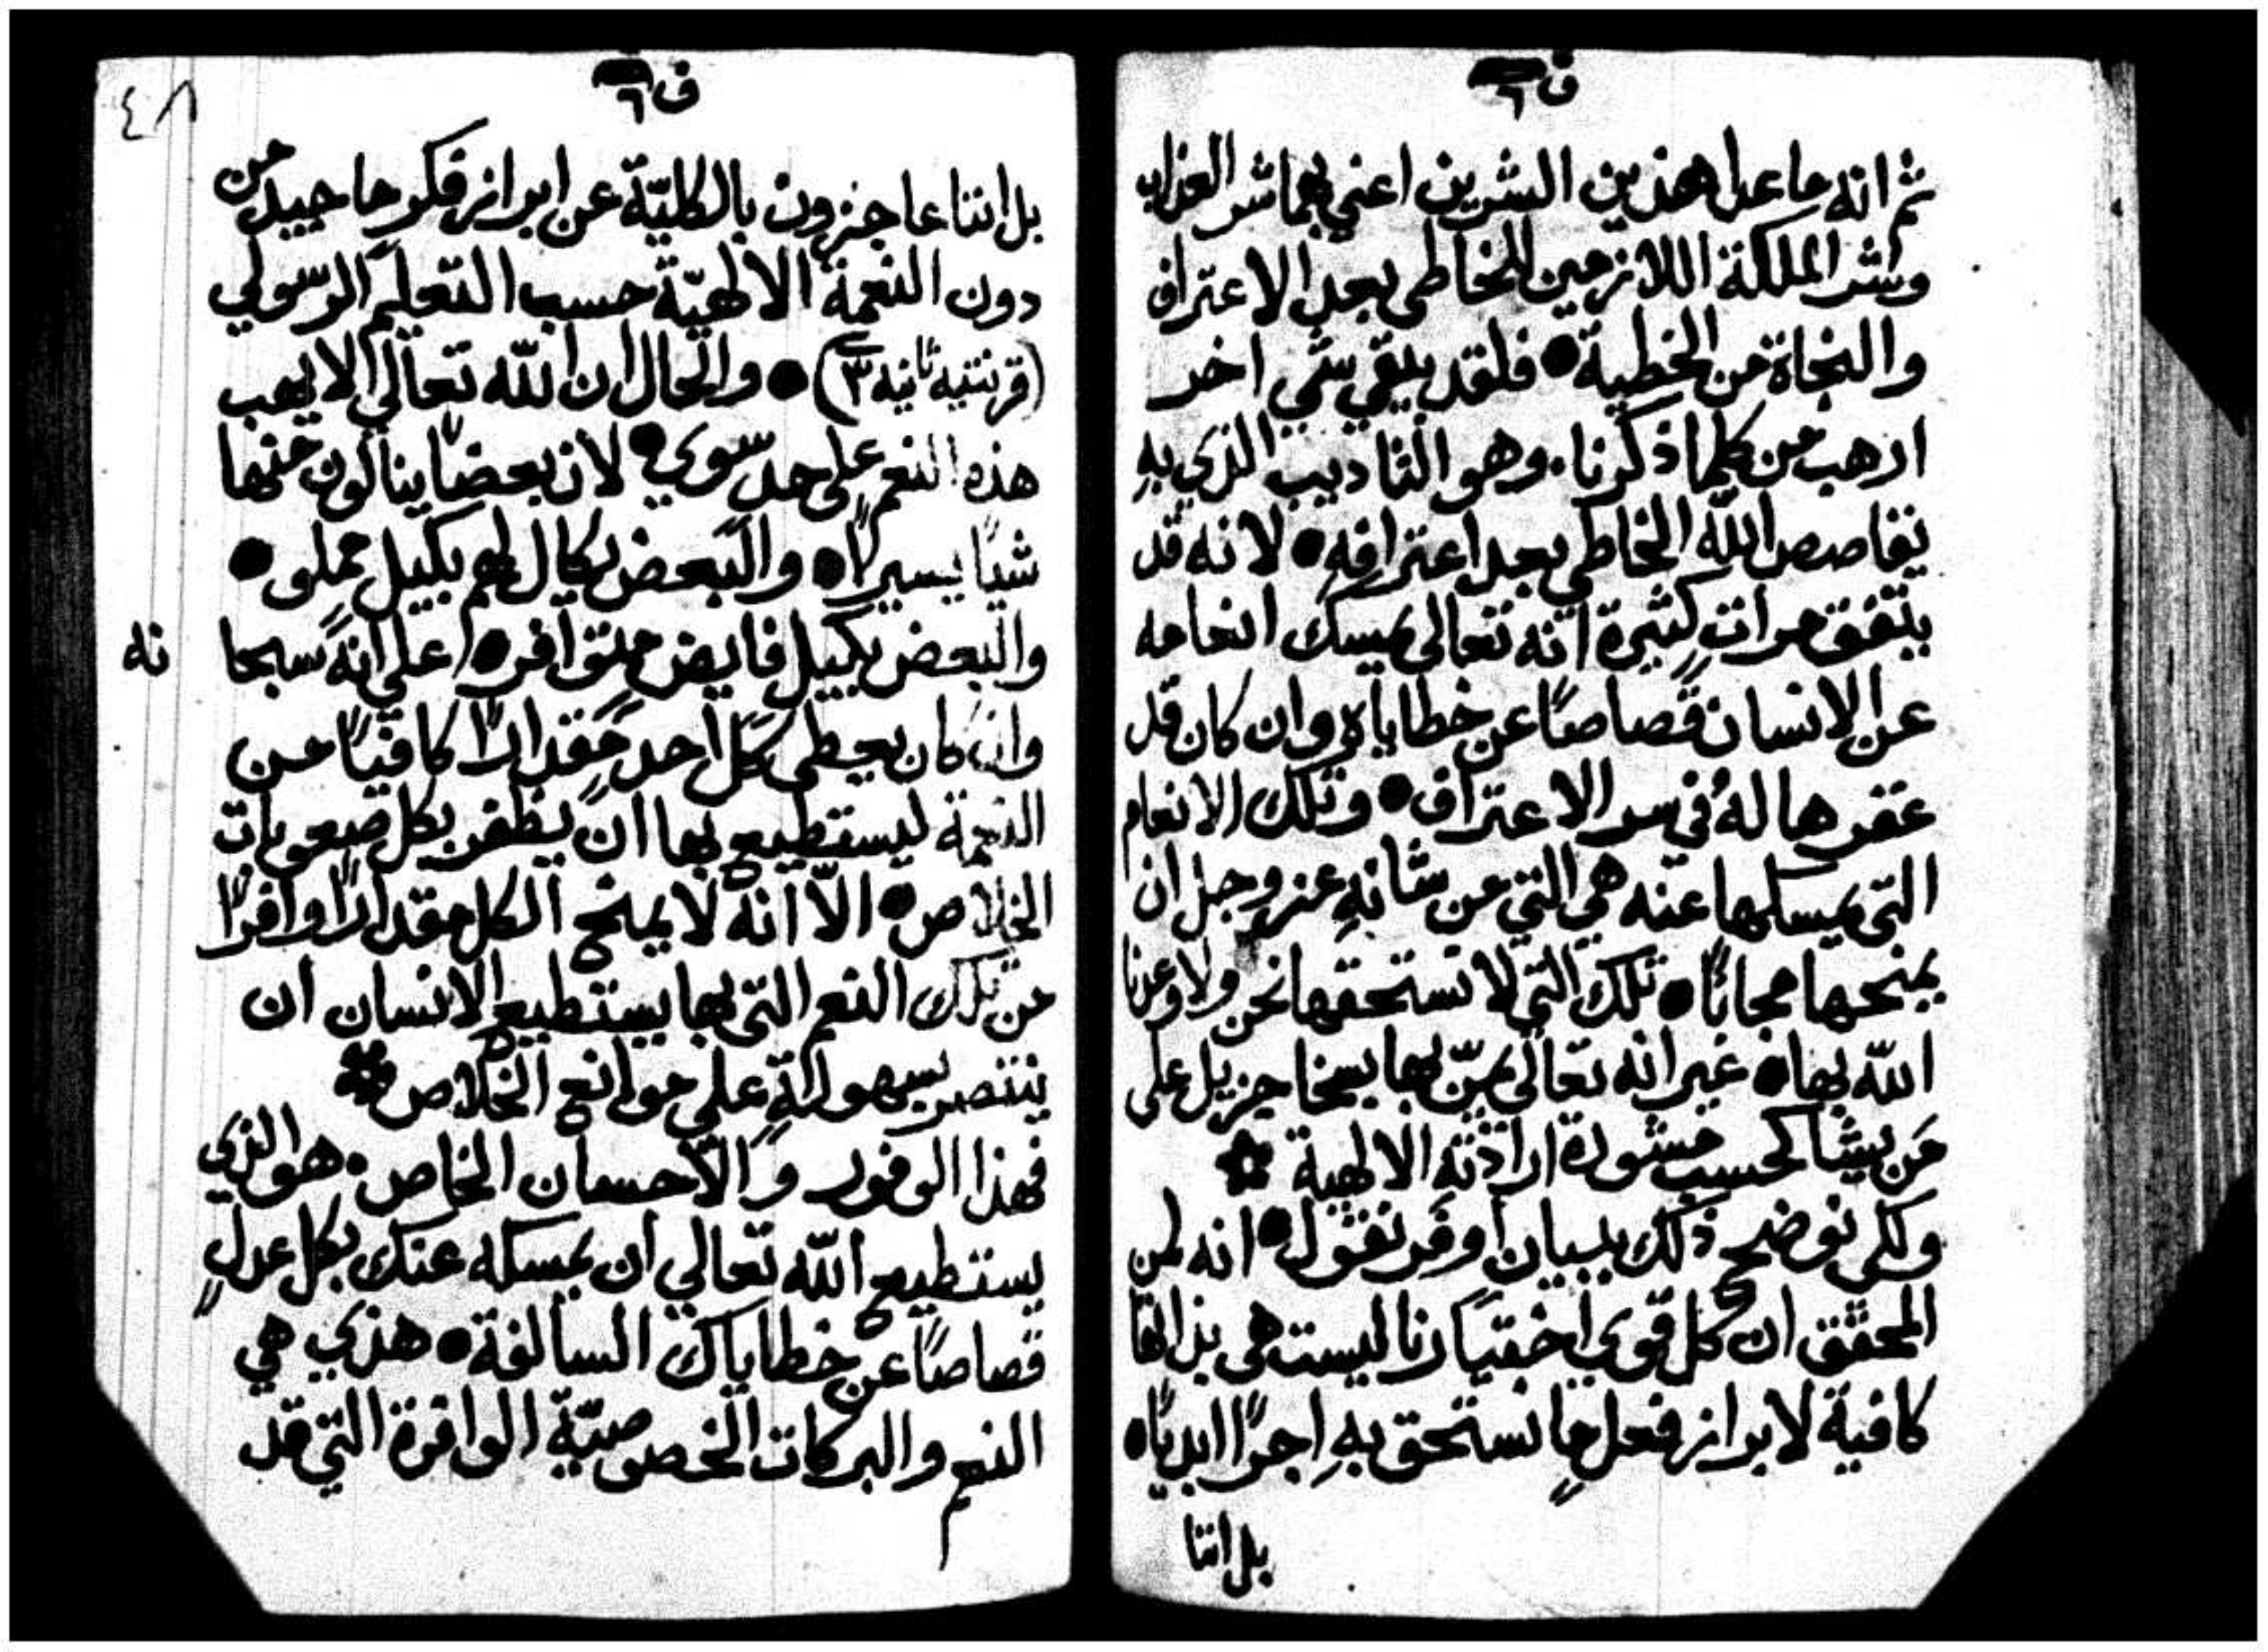 ف ٦
ثم انه ما عدا هذين الشرين اعني بهما شر العذاب
وشر الملكة اللازمين للخاطي بعد الاعتراف
والنجاة من الخطية • فلقد يبقي شي اخر
ارهب من كلما ذكرنا. وهو التاديب الذي بهِ
يقاصص الله الخاطي بعد اعترافهِ • لانه قد
يتفق مراتٍ كثيرة انه تعالي يمسك انعامه
عن الانسان قصاصًا عن خطاياه وان كان قد
غفرها لهُ في سر الاعتراف • وتلك الانعام
التي يمسكها عنه هي التي من شانهِ عز وجل ان
يمنحها مجانًا • تلك التي لا نستحقها نحن ولا وعدنا
الله بها • غير انه تعالي يمنّ بها بسخا جزيل علي
مَن يشا كحسب مشورة ارادته الالهية
ولكي نوضح ذلك ببيان اوفر نقول • انه لمن
المحقق ان كل قوي اختيارنا ليست هي بذاتها
كافية لابراز فعل مٍا نستحق بهِ اجرًا ابديًا •
بل اننا
ف ٦
٤٨
بل اننا عاجزون بالكليّة عن ابراز فكر ما جيد من
دون النعمة الالهيّة حسب التعليم الرسولي
(قرنتيه ثانيه ٣) • والحال ان الله تعالي لا يهب
هذه النعم علي حد سوي • لان بعضًا ينالون منها
شيًا يسيرًا • والبعض يكال لهم بكيل مملو •
والبعض بكيل فايض متوافر • علي انهُ سبحا
نه
وان كان يعطي كل احد مقدارًا كافيًا من
النعمة ليستطيع بها ان يظفر بكل صعوبات
الخلاص • الّا انه لا يمنح الكل مقدارًا وافرًا
من تلك النعم التي بها يستطيع الانسان ان
ينتصر بسهولةٍ علي موانع الخلاص
فهذا الوفور والاحسان الخاص. هو الذي
يستطيع الله تعالي ان يمسكه عنك بكل عدلٍ
قصاصًا عن خطاياك السالفة • هذي هي
النعم والبركات الخصوصيّة الوافرة التي قد